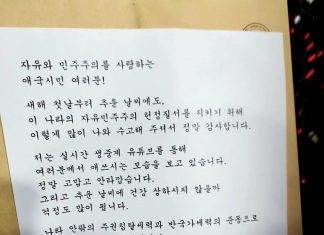 자유와 민주주의를 사랑하는
애국시민 여러분!
새해 첫날부터 추운 날씨에도,
이 나라의 자유민주주의 헌정질서를 지키기 위해
이렇게 많이 나와 수고해 주셔서 정말 감사합니다.
저는 실시간 생중계 유튜브를 통해
여러분께서 애쓰시는 모습을 보고 있습니다.
정말 고맙고 안타깝습니다.
그리고 추운 날씨에 건강 상하시지 않을까
걱정도 많이 됩니다.
나라 안팎의 주권침탈세력과 반국가세력의 준동으로